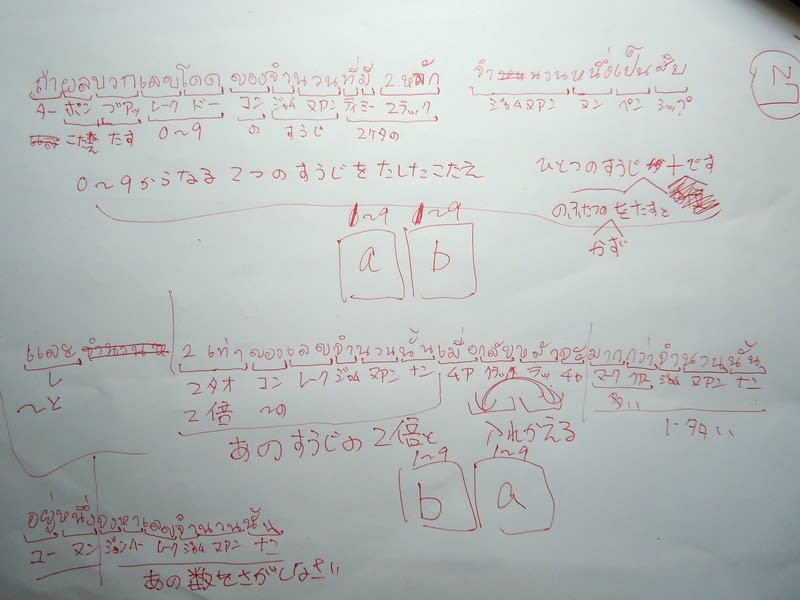 ถ้าผลบวกเลขโดด ของจำนวนที่มี 2 หลัก จำนวนหนึ่งเป็นสิบ
ター ポン ブアッ レーク ドー コン ジャム ヌアン ティミー 2ラック ジャムヌアン ヌン ペン シップ
こたえ たす 0～9 の すうじ 2ケタの
0～9からなる 2つのすうじをたしたこたえ ひとつのすうじ 十です
のふたつをたすと
かず
1～9 1～9
a b
และ 2 เท่าของเลขจำนวนนั้นเมื่อกลับหลักจะมากกว่าจำนวนนั้น
2タオ コン レーク ジャム ヌアン ナン
～と 2倍 ～の 多い
あのすうじの2倍と 入れかえる 1多い
1～9 1～9
b a
อยู่หนึ่งจงหาเลขจำนวนนั้น
ユー ヌン ジョンハー レーク ジャム ヌアン ナン
あの数をさがしなさい